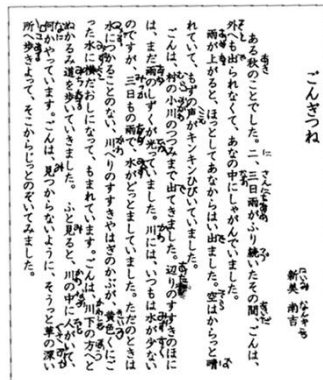 ごんぎつね
新美 南吉
ある秋のことでした。二、三日雨がふり続いたその間、ごんは、
外へも出られなくて、あなの中にしゃがんでいました。
雨が上がると、ごんは、ほっとしてあなからはい出ました。空はからっと晴
れていて、もずの声がキンキンひびいていました。
ごんは、村の小川のつつみまで出てきました。辺りのすすきのほに
は、まだ雨のしずくが光っていました。川には、いつもは水が少ない
のですが、三日もの雨で、水がどっとましていました。ただのときは
水につかることのない、川べりのすすきやはぎのかぶが、黄色くにご
った水に横だおしになって、もまれています。ごんは、川下の方へと
ぬかるみ道を歩いていきました。 ふと見ると、川の中に人がいて、
何かやっています。ごんは、見つからないように、そうっと草の深い
所へ歩きよって、そこからじっとのぞいてみました。